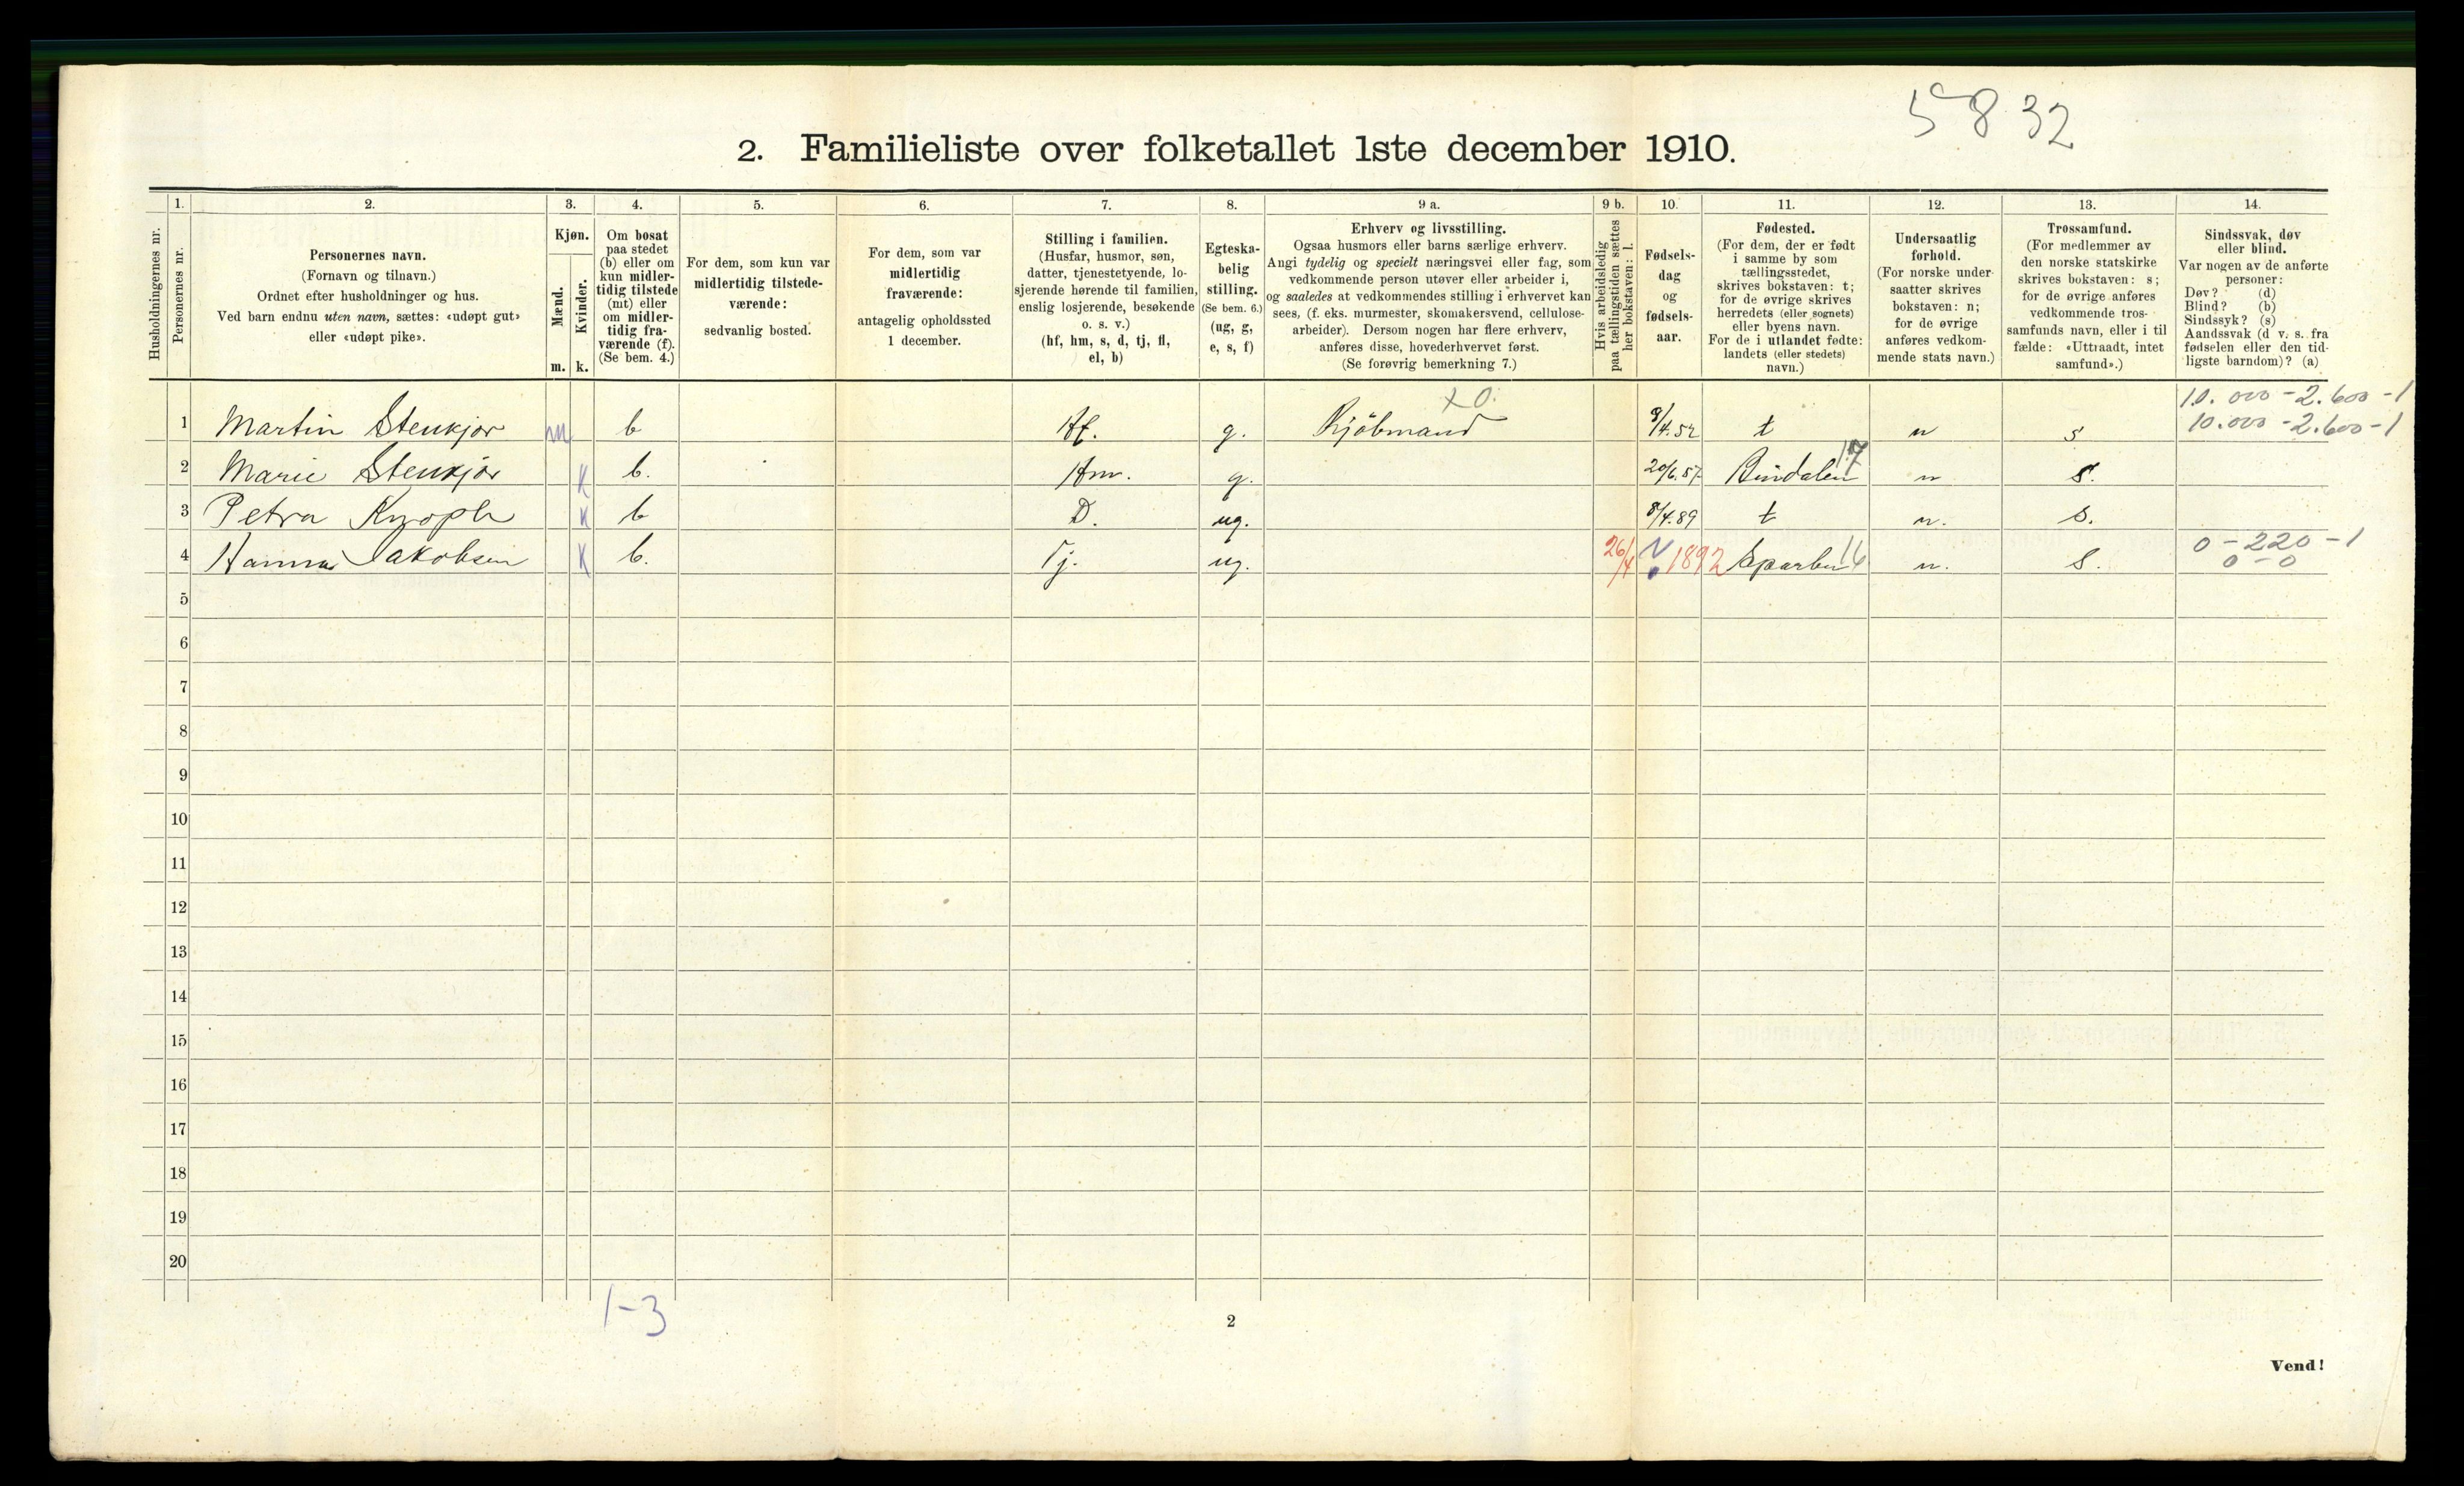 5832
2. Familieliste over folketallet 1ste december 1910.
Husholdningernes nr.
1. Personernes nr.
2. Personernes navn.
(Fornavn og tilnavn.)
Ordnet efter husholdninger og hus.
Ved barn endnu uten navn, sættes: «udøpt gut»
eller «udøpt pike».
3. Kjøn.
Mænd. m.
Kvinder. k.
4. Om bosat
paa stedet
(b) eller om
kun midler-
tidig tilstede
(mt) eller
om midler-
tidig fra-
værende (f).
(Se bem. 4.)
5. For dem, som kun var
midlertidig tilstede-
værende:
sedvanlig bosted.
6. For dem, som var
midlertidig
fraværende:
antagelig opholdssted
1 december.
7. Stilling i familien.
(Husfar, husmor, søn,
datter, tjenestetyende, lo-
sjerende hørende til familien,
enslig losjerende, besøkende
o. s. v.)
(hf, hm, s, d, tj, fl,
el, b)
8. Egteska-
belig
stilling.
(Se bem. 6.)
(ug, g,
e, s, f)
9 a. Erhverv og livsstilling.
Ogsaa husmors eller barns særlige erhverv.
Angi tydelig og specielt næringsvei eller fag, som
vedkommende person utøver eller arbeider i,
og saaledes at vedkommendes stilling i erhvervet kan
sees, (f. eks. murmester, skomakersvend, cellulose-
arbeider). Dersom nogen har flere erhverv,
anføres disse, hovederhvervet først.
(Se forøvrig bemerkning 7.)
9 b. Hvis arbeidsledig
paa tællingstiden sættes
her bokstaven: l.
10. Fødsels-
dag
og
fødsels-
aar.
11. Fødested.
(For dem, der er født
i samme by som
tællingsstedet,
skrives bokstaven: t;
for de øvrige skrives
herredets (eller sognets)
eller byens navn.
For de i utlandet fødte:
landets (eller stedets)
navn.)
12. Undersaatlig
forhold.
(For norske under-
saatter skrives
bokstaven: n;
for de øvrige
anføres vedkom-
mende stats navn.)
13. Trossamfund.
(For medlemmer av
den norske statskirke
skrives bokstaven: s;
for de øvrige anføres
vedkommende tros-
samfunds navn, eller i til-
fælde: «Uttraadt, intet
samfund».)
14. Sindssvak, døv
eller blind.
Var nogen av de anførte
personer:
Døv? (d)
Blind? (b)
Sindssyk? (s)
Aandssvak (d. v. s. fra
fødselen eller den tid-
ligste barndom)? (a)
x 0. 10.000 - 2.600 - 1
1 Martin Stenkjør m b Hf. g. Kjöbmand 9/4.52 t n s 10.000 - 2.600 - 1
2 Marie Stenkjør K b. Hm. g. 20/6.57 Bindalen 17 n s.
3 Petra Knoph K b D. ug. 8/4.89 t n. s.
0 - 220 - 1
4 Hanna Jakobsen K b. Tj. ug. 26/4 1892 Sparbu 16 n. s. 0 - 0
5
6
7
8
9
10
11
12
13
14
15
16
17
18
19
20
1-3
2
Vend!